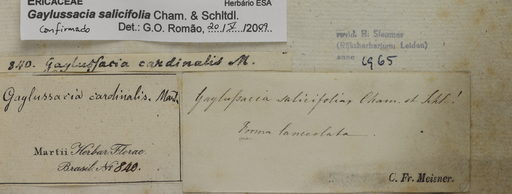 ERICACEAE
Herbário ESA
Gaylussacia salicifolia Cham. & Schltdl.
confirmado
Det.: G.O. Romão, 20/V/2009
revid. H. Sleumer
(Rijksherbarium Leiden)
anno 1965
840. Gaylussacia cardinalis M.
Gaylussacia cardinalis. Mart.
Martii Herbar. Florae
Brasil. No 840.
Gaylussacia salicifolia Cham. et Schl.!
Forma lanceolata.
C. Fr. Meisner.